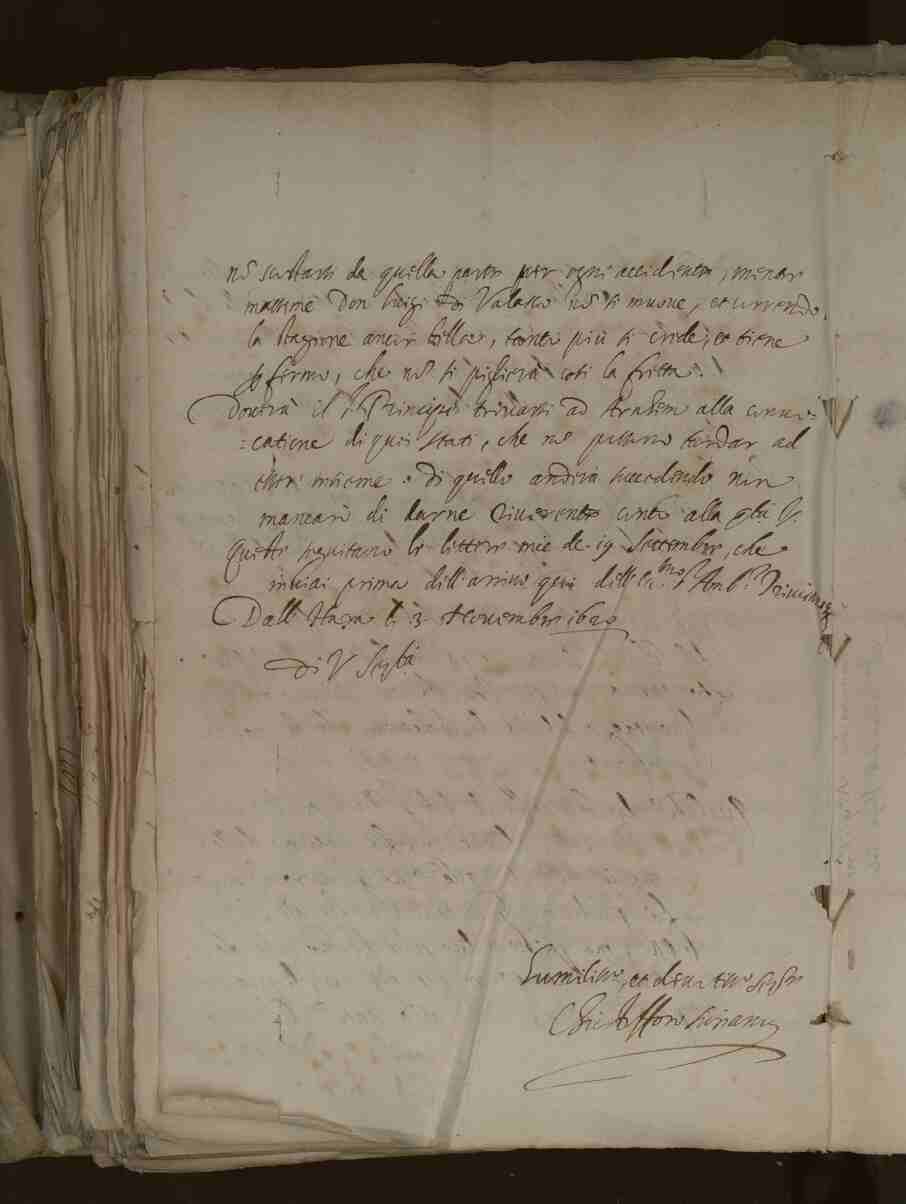 nõ scostarsi da quella parte per ogni accidente, mentre
massime Don Luigi di Valasco nõ si muove, et correndo
la stagione ancor bella, tanto più si crede, et tiene
p̲ fermo, che nõ si piglierà così la fretta.
Doverà il s.r Principe trovarsi ad Arnhem alla convo=
=catione di quei stati, che nõ possono tardar ad
esser insieme. di quello anderà succedendo non
mancarò di darne riverente conto alla
Queste seguitano le lettere mie de 19 Settembre, che
inviai prima dell'arrivo qui dell'Ecc.mo s.r Amb.r Trivisano
Dall'Haya li 3 Novembre 1620
Di V Ser.tà
Humiliss.o, et devotiss.o Ser.re
Christofforo Suriano